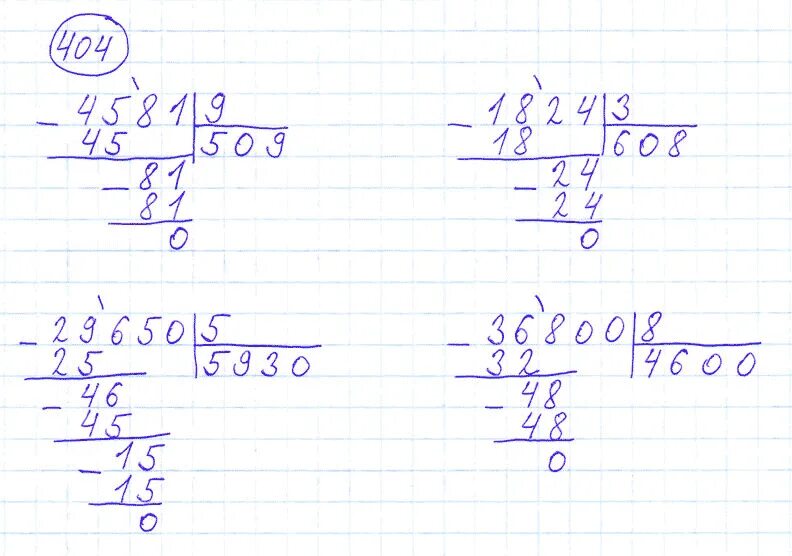 404
- 4581 | 9
45 | 509
- 81
81
0
- 1824 | 3
18 | 608
- 24
24
0
- 29650 | 5
25 | 5930
- 46
45
- 15
15
0
- 36800 | 8
32 | 4600
- 48
48
0